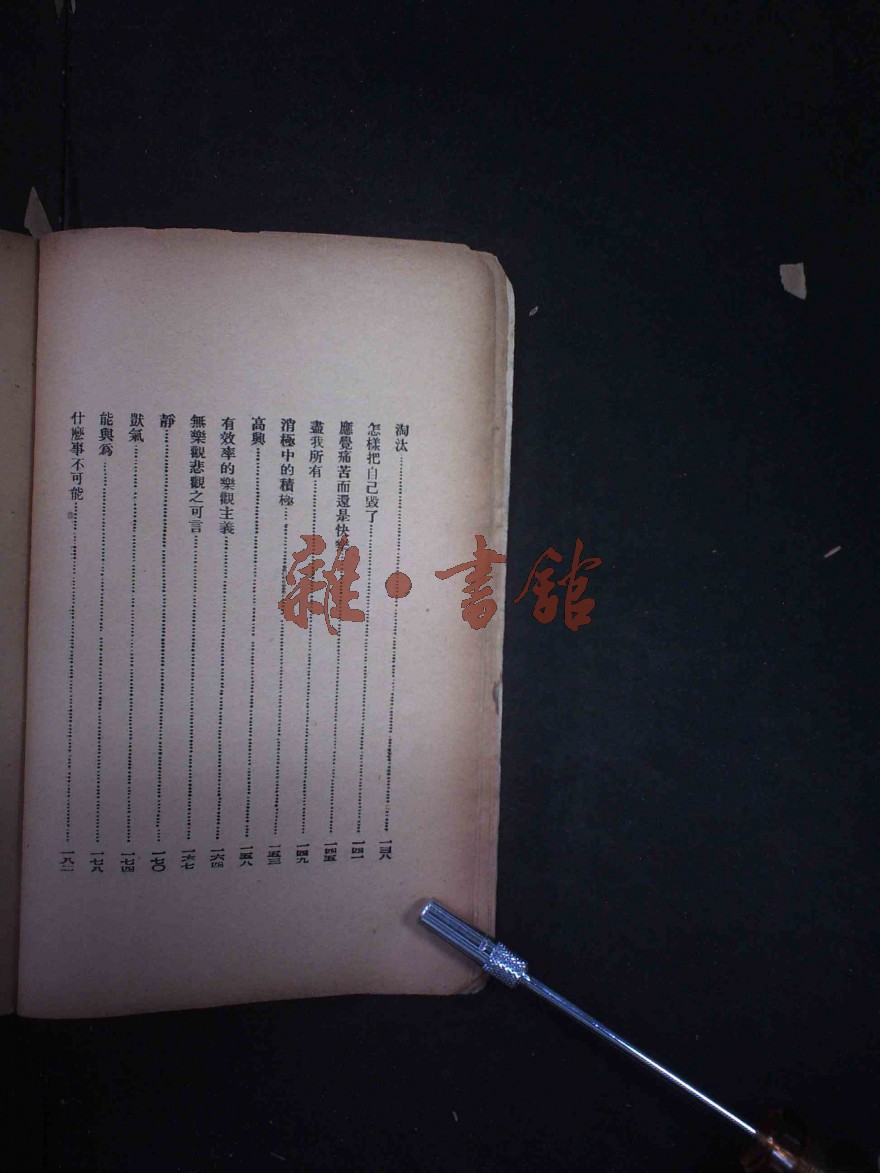 淘汰……一三八
怎樣把自己毀了……一四一
應覺痛苦而還是快樂……一四五
盡我所有……一四九
消極中的積極……一五三
高興……一五八
有效率的樂觀主義……一六四
無樂觀悲觀之可言……一六七
靜……一七〇
獃氣……一七四
能與爲……一七八
什麼事不可能……一八二
雜・書館